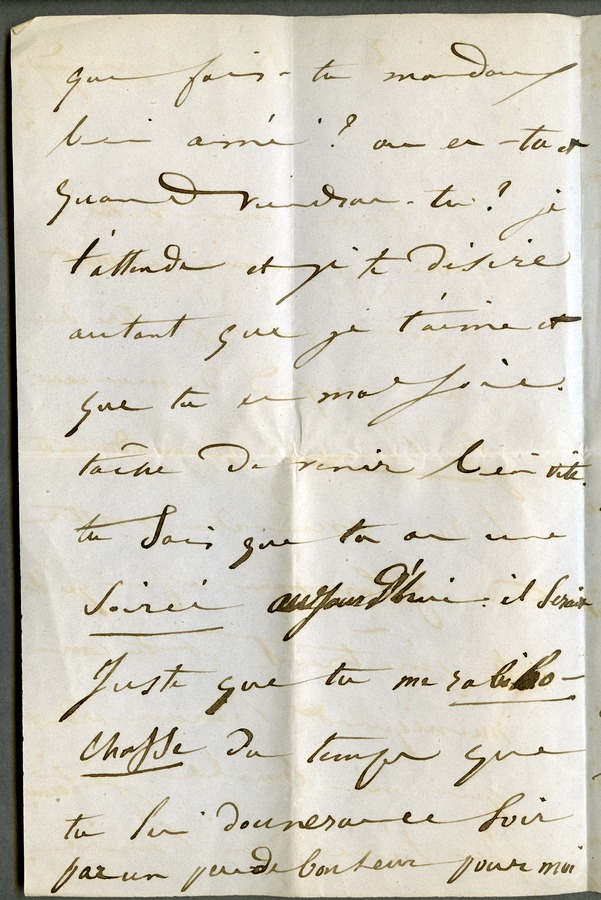 que fais-tu mon doux
bien aimé ? ou es-tu et
quand viendras-tu ? je
t'attends et je te désire
autant que je t'aime et
que tu es ma joie.
tâche de venir bien vite.
tu sais que tu as une
soirée aujourd'hui. il serait
Juste que tu me rabibo-
chasse du temps que
tu lui donneras ce soir
par un peu de bonheur pour moi